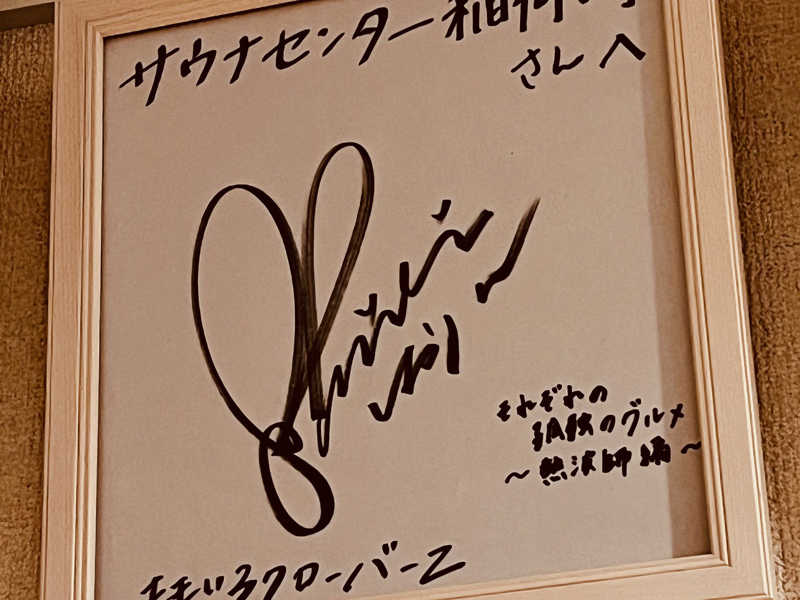 サウナセンター稲荷町
さんへ
それぞれの
孤独のグルメ
~熱波師編~
ももいろクローバーZ